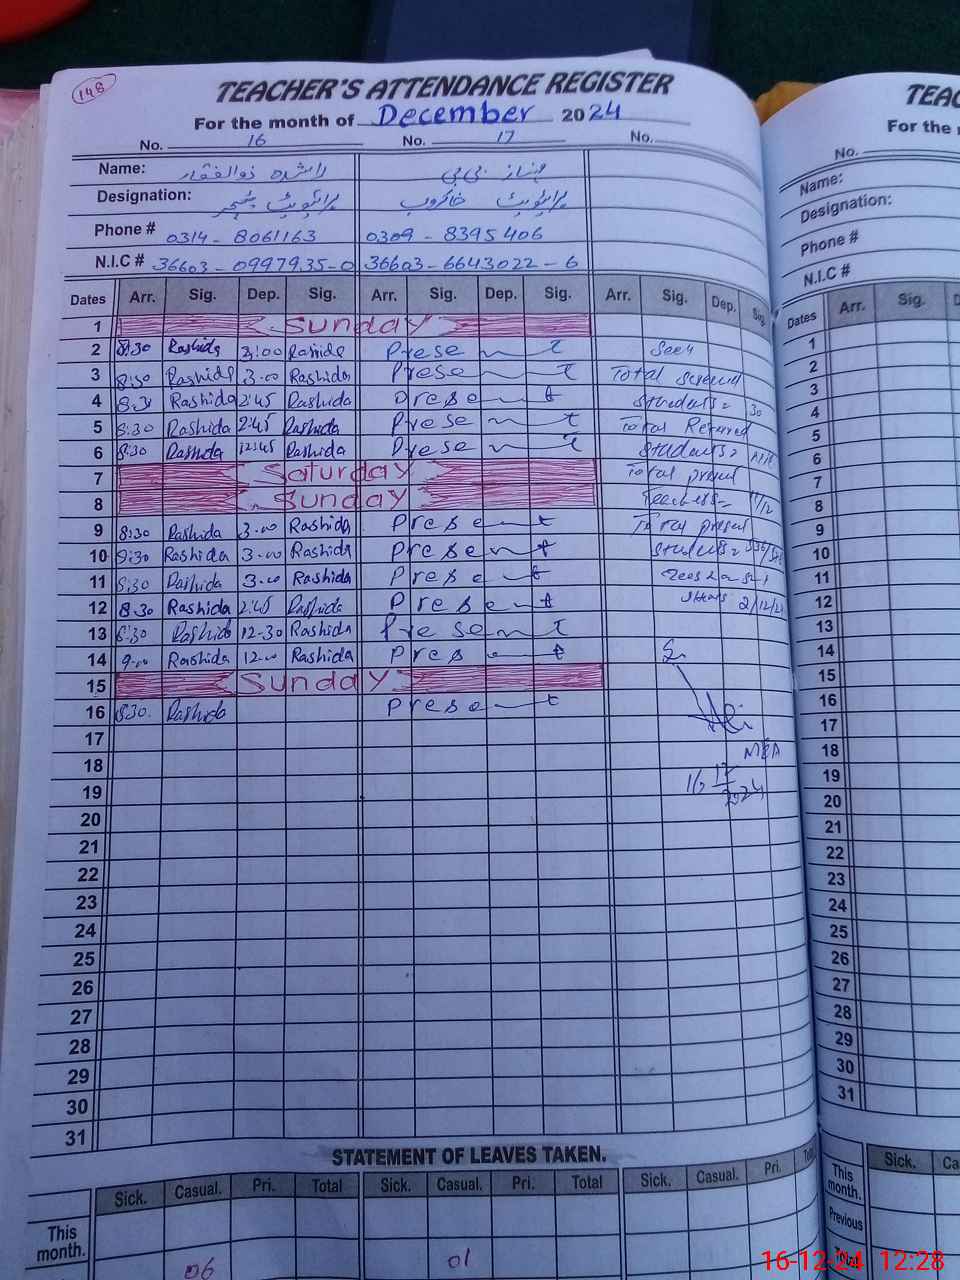 148
TEACHER'S ATTENDANCE REGISTER
For the month of December 2024
No. 16 No. 17 No.
Name: راشدہ ذوالفقار بی بی
Designation: پرائیویٹ ٹیچر پرائیویٹ خاکروب
Phone # 0314-8061163 0309-8395406
N.I.C # 36603-0997935-0 36603-6643022-6
Dates Arr. Sig. Dep. Sig. Arr. Sig. Dep. Sig. Arr. Sig. Dep. Sig.
1 Sunday
2 8:30 Rashida 3:00 Rashida Present Seen
3 8:30 Rashida 3.00 Rashida Present Total
4 8.30 Rashida 2:45 Rashida Present Students= 30
5 8:30 Rashida 2:45 Rashida Present Total
6 8:30 Rashida 12:45 Rashida Present Students=
7 Saturday Total present
8 Sunday
9 8:30 Rashida 3.00 Rashida Present Total present
10 8:30 Rashida 3.00 Rashida Present Students=
11 8:30 Rashida 3.00 Rashida Present
12 8.30 Rashida 2:45 Rashida Present
13 8:30 Rashida 12-30 Rashida Present
14 9.00 Rashida 12.00 Rashida Present
15 Sunday
16 8:30. Rashida Present
17
18 MEA
19 16/12
20 2024
21
22
23
24
25
26
27
28
29
30
31
STATEMENT OF LEAVES TAKEN.
Sick. Casual. Pri. Total Sick. Casual. Pri. Total Sick. Casual. Pri.
This month.
06 01
TEAC
For the
No.
Name:
Designation:
Phone #
N.I.C #
Dates Arr. Sig.
1
2
3
4
5
6
7
8
9
10
11
12
13
14
15
16
17
18
19
20
21
22
23
24
25
26
27
28
29
30
31
Sick. Ca
This month.
Previous
16-12-24 12:28